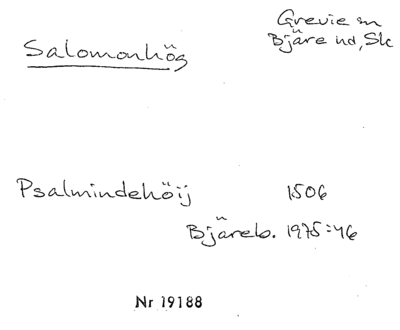 Salomonhög
Grevie sn
Bjäre hd, Sk
Psalmindehöij 1506
Bjäreb. 1975:46
Nr 19188